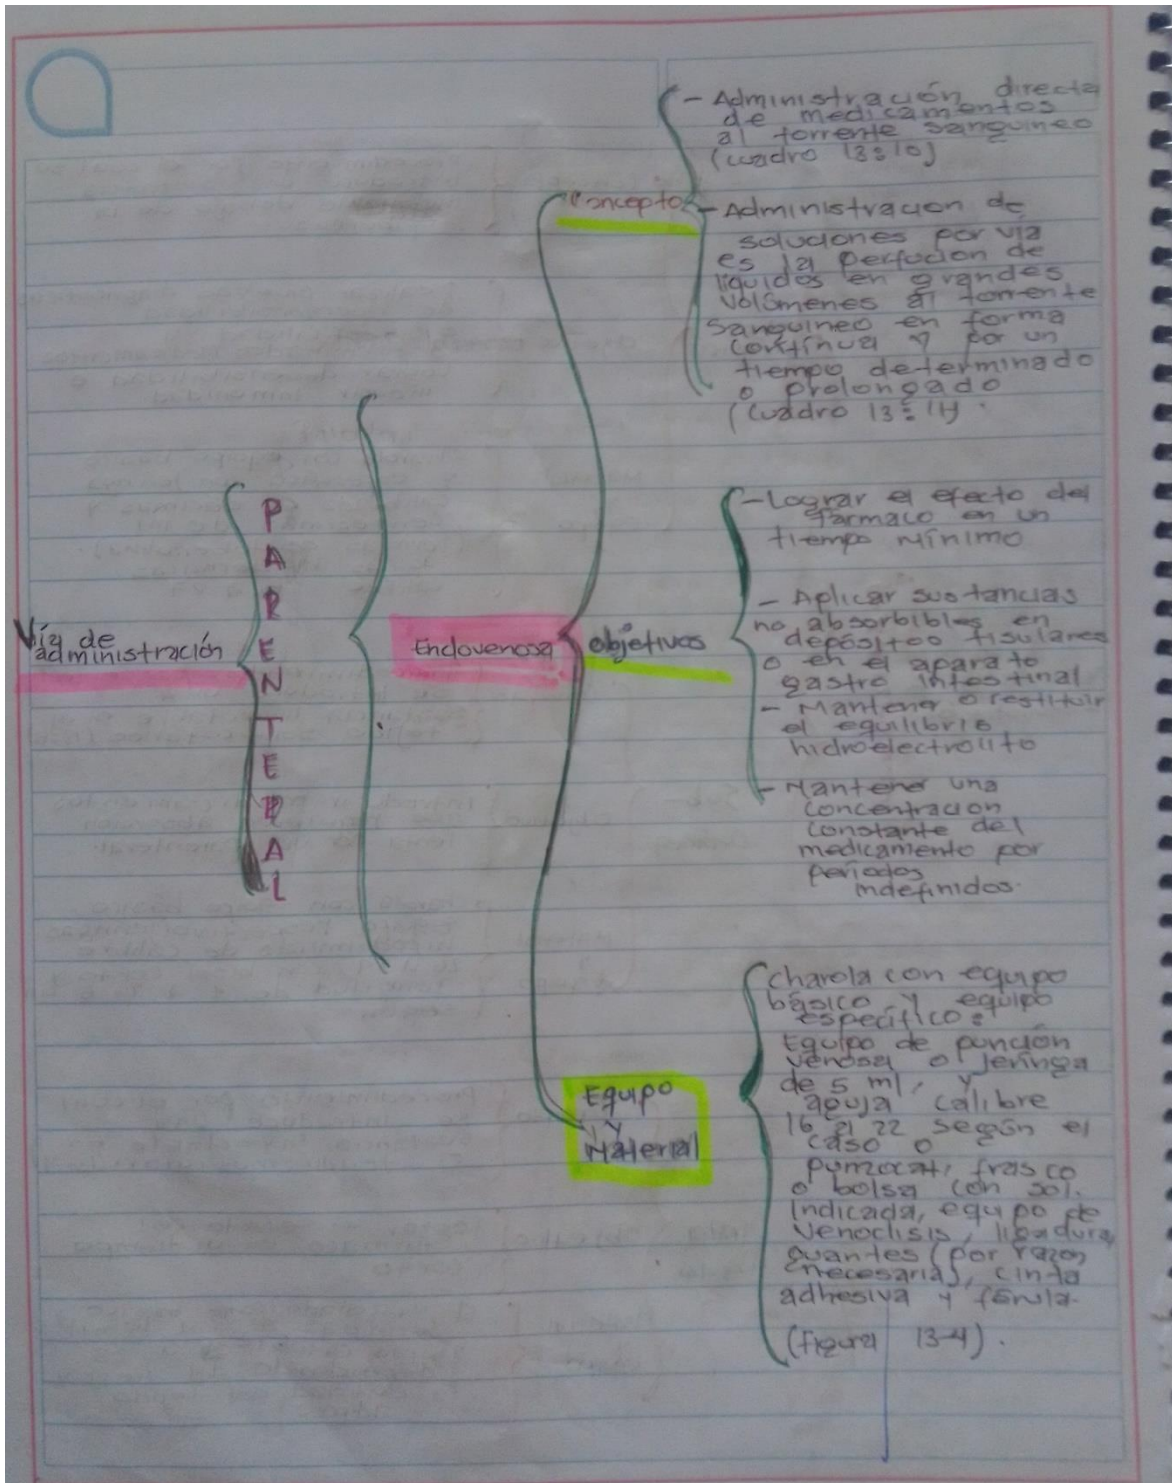 Vía de
administración
PARENTERAL
Endovenosa
Concepto
- Administración directa
de medicamentos
al torrente sanguineo
(cuadro 13:10)
- Administracion de
soluciones por vía
es la perfucion de
líquidos en grandes
volúmenes al torrente
sanguineo en forma
contínua y por un
tiempo determinado
o prolongado
(Cuadro 13:11)
objetivos
- Lograr el efecto del
farmaco en un
tiempo mínimo
- Aplicar sustancias
no absorbibles en
depósitos tisulares
o en el aparato
gastro intestinal
- Mantener o restituir
el equilibrio
hidroelectrolito
- Mantener una
concentracion
constante del
medicamento por
periodos
indefinidos.
Equipo
y
Material
charola con equipo
básico y equipo
específico:
Equipo de punción
venosa o jeringa
de 5 ml, y
aguja calibre
16 al 22 según el
caso o
punzocat, frasco
o bolsa con sol.
Indicada, equipo de
venoclisis, ligadura,
guantes (por razon
necesaria), cinta
adhesiva y ferula.
(figura 13-4).